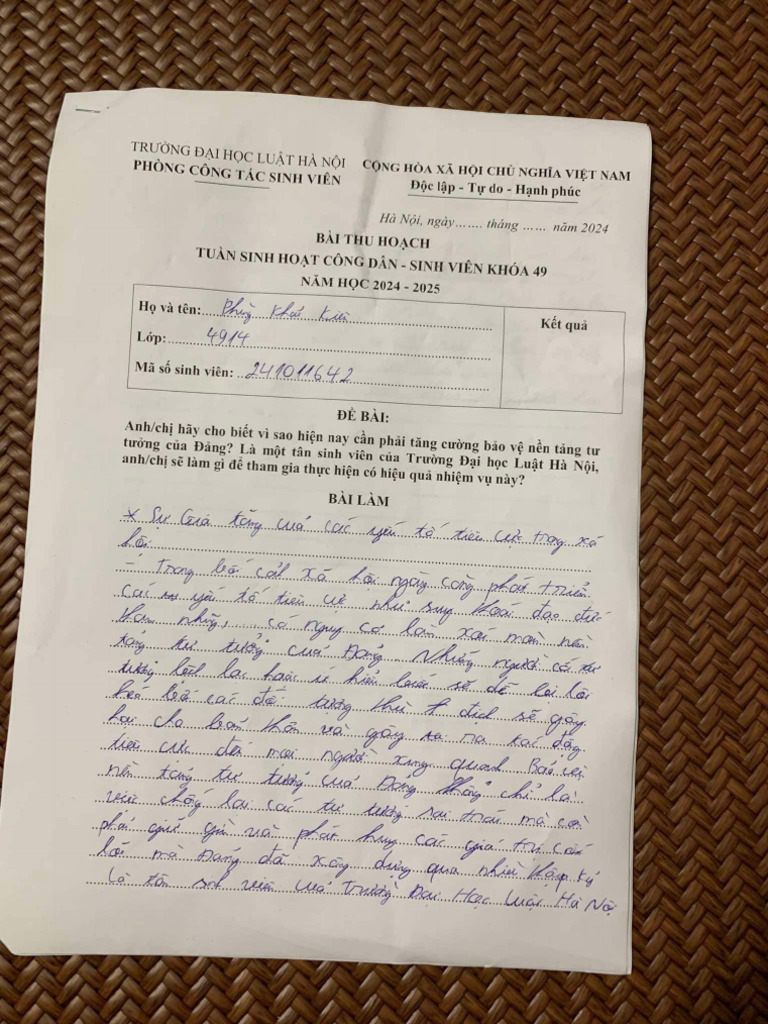 TRƯỜNG ĐẠI HỌC LUẬT HÀ NỘI
PHÒNG CÔNG TÁC SINH VIÊN
CỘNG HÒA XÃ HỘI CHỦ NGHĨA VIỆT NAM
Độc lập - Tự do - Hạnh phúc
Hà Nội, ngày....... tháng ...... năm 2024
BÀI THU HOẠCH
TUẦN SINH HOẠT CÔNG DÂN - SINH VIÊN KHÓA 49
NĂM HỌC 2024 - 2025
Họ và tên: Phùng Khắc
Kết quả
Lớp: 4914
Mã số sinh viên: 241011642
ĐỀ BÀI:
Anh/chị hãy cho biết vì sao hiện nay cần phải tăng cường bảo vệ nền tảng tư
tưởng của Đảng? Là một tân sinh viên của Trường Đại học Luật Hà Nội,
anh/chị sẽ làm gì để tham gia thực hiện có hiệu quả nhiệm vụ này?
BÀI LÀM
* Sự Gia tăng của các yếu tố tiêu cực trong xã
hội
- Trong bối cảnh xã hội ngày càng phát triển
các yếu tố tiêu cực như suy thoái đạo đức
tham nhũng,... có nguy cơ làm xói mòn nền
tảng tư tưởng của Đảng. Những người có tư
tưởng lệch lạc hoặc ít hiểu biết sẽ dễ bị lôi
kéo bởi các đối tượng thù địch sẽ gây
hại cho bản thân và gây ra tác động
tiêu cực đến mọi người xung quanh. Bảo vệ
nền tảng tư tưởng của Đảng không chỉ là
việc chống lại các tư tưởng sai trái mà còn
phải giữ gìn và phát huy các giá trị cốt
lõi mà Đảng đã xây dựng qua nhiều thập kỷ
Là tân sinh viên của trường Đại Học Luật Hà Nội